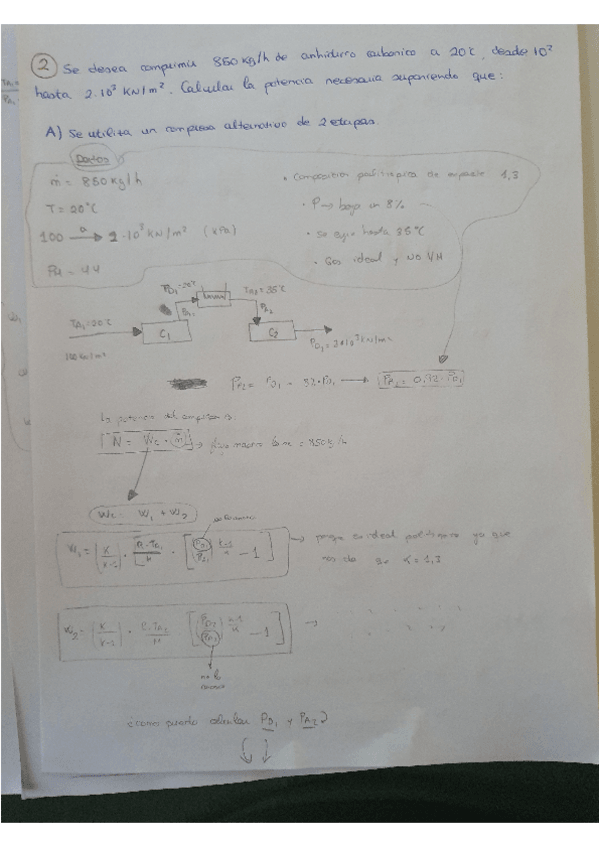 2 Se desea comprimir 850 kg/h de anhídrido carbonico a 20°C, desde 10²
hasta 2·10³ KN/m². Calcular la potencia necesaria suponiendo que:
A) Se utiliza un compresor alternativo de 2 etapas.
Datos
ṁ = 850 kg/h
T = 20°C
100 → 2·10³ KN/m² (KPa)
44
· Compresion politropica de exponente 1,3
· P baja un 8%
· se hasta 35°C
· Gas ideal y NO VM
TA1=20°C
C1
C2
PA2 = PD1 - 8%·PD1 → PA2 = 0,92·PD1
La potencia del compresor es:
N = ·ṁ → = 850 kg/h
= W1 + W2
W1 = (K/K-1) · R·TA1/M · [(PD1/PA1)^(K-1/K) - 1] → porque es ideal politropico ya que
nos da K = 1,3
W2 = (K/K-1) · R·TA2/M · [(PD2/PA2)^(K-1/K) - 1] →
no la
conozco
¿como puedo calcular PD1 y PA2?